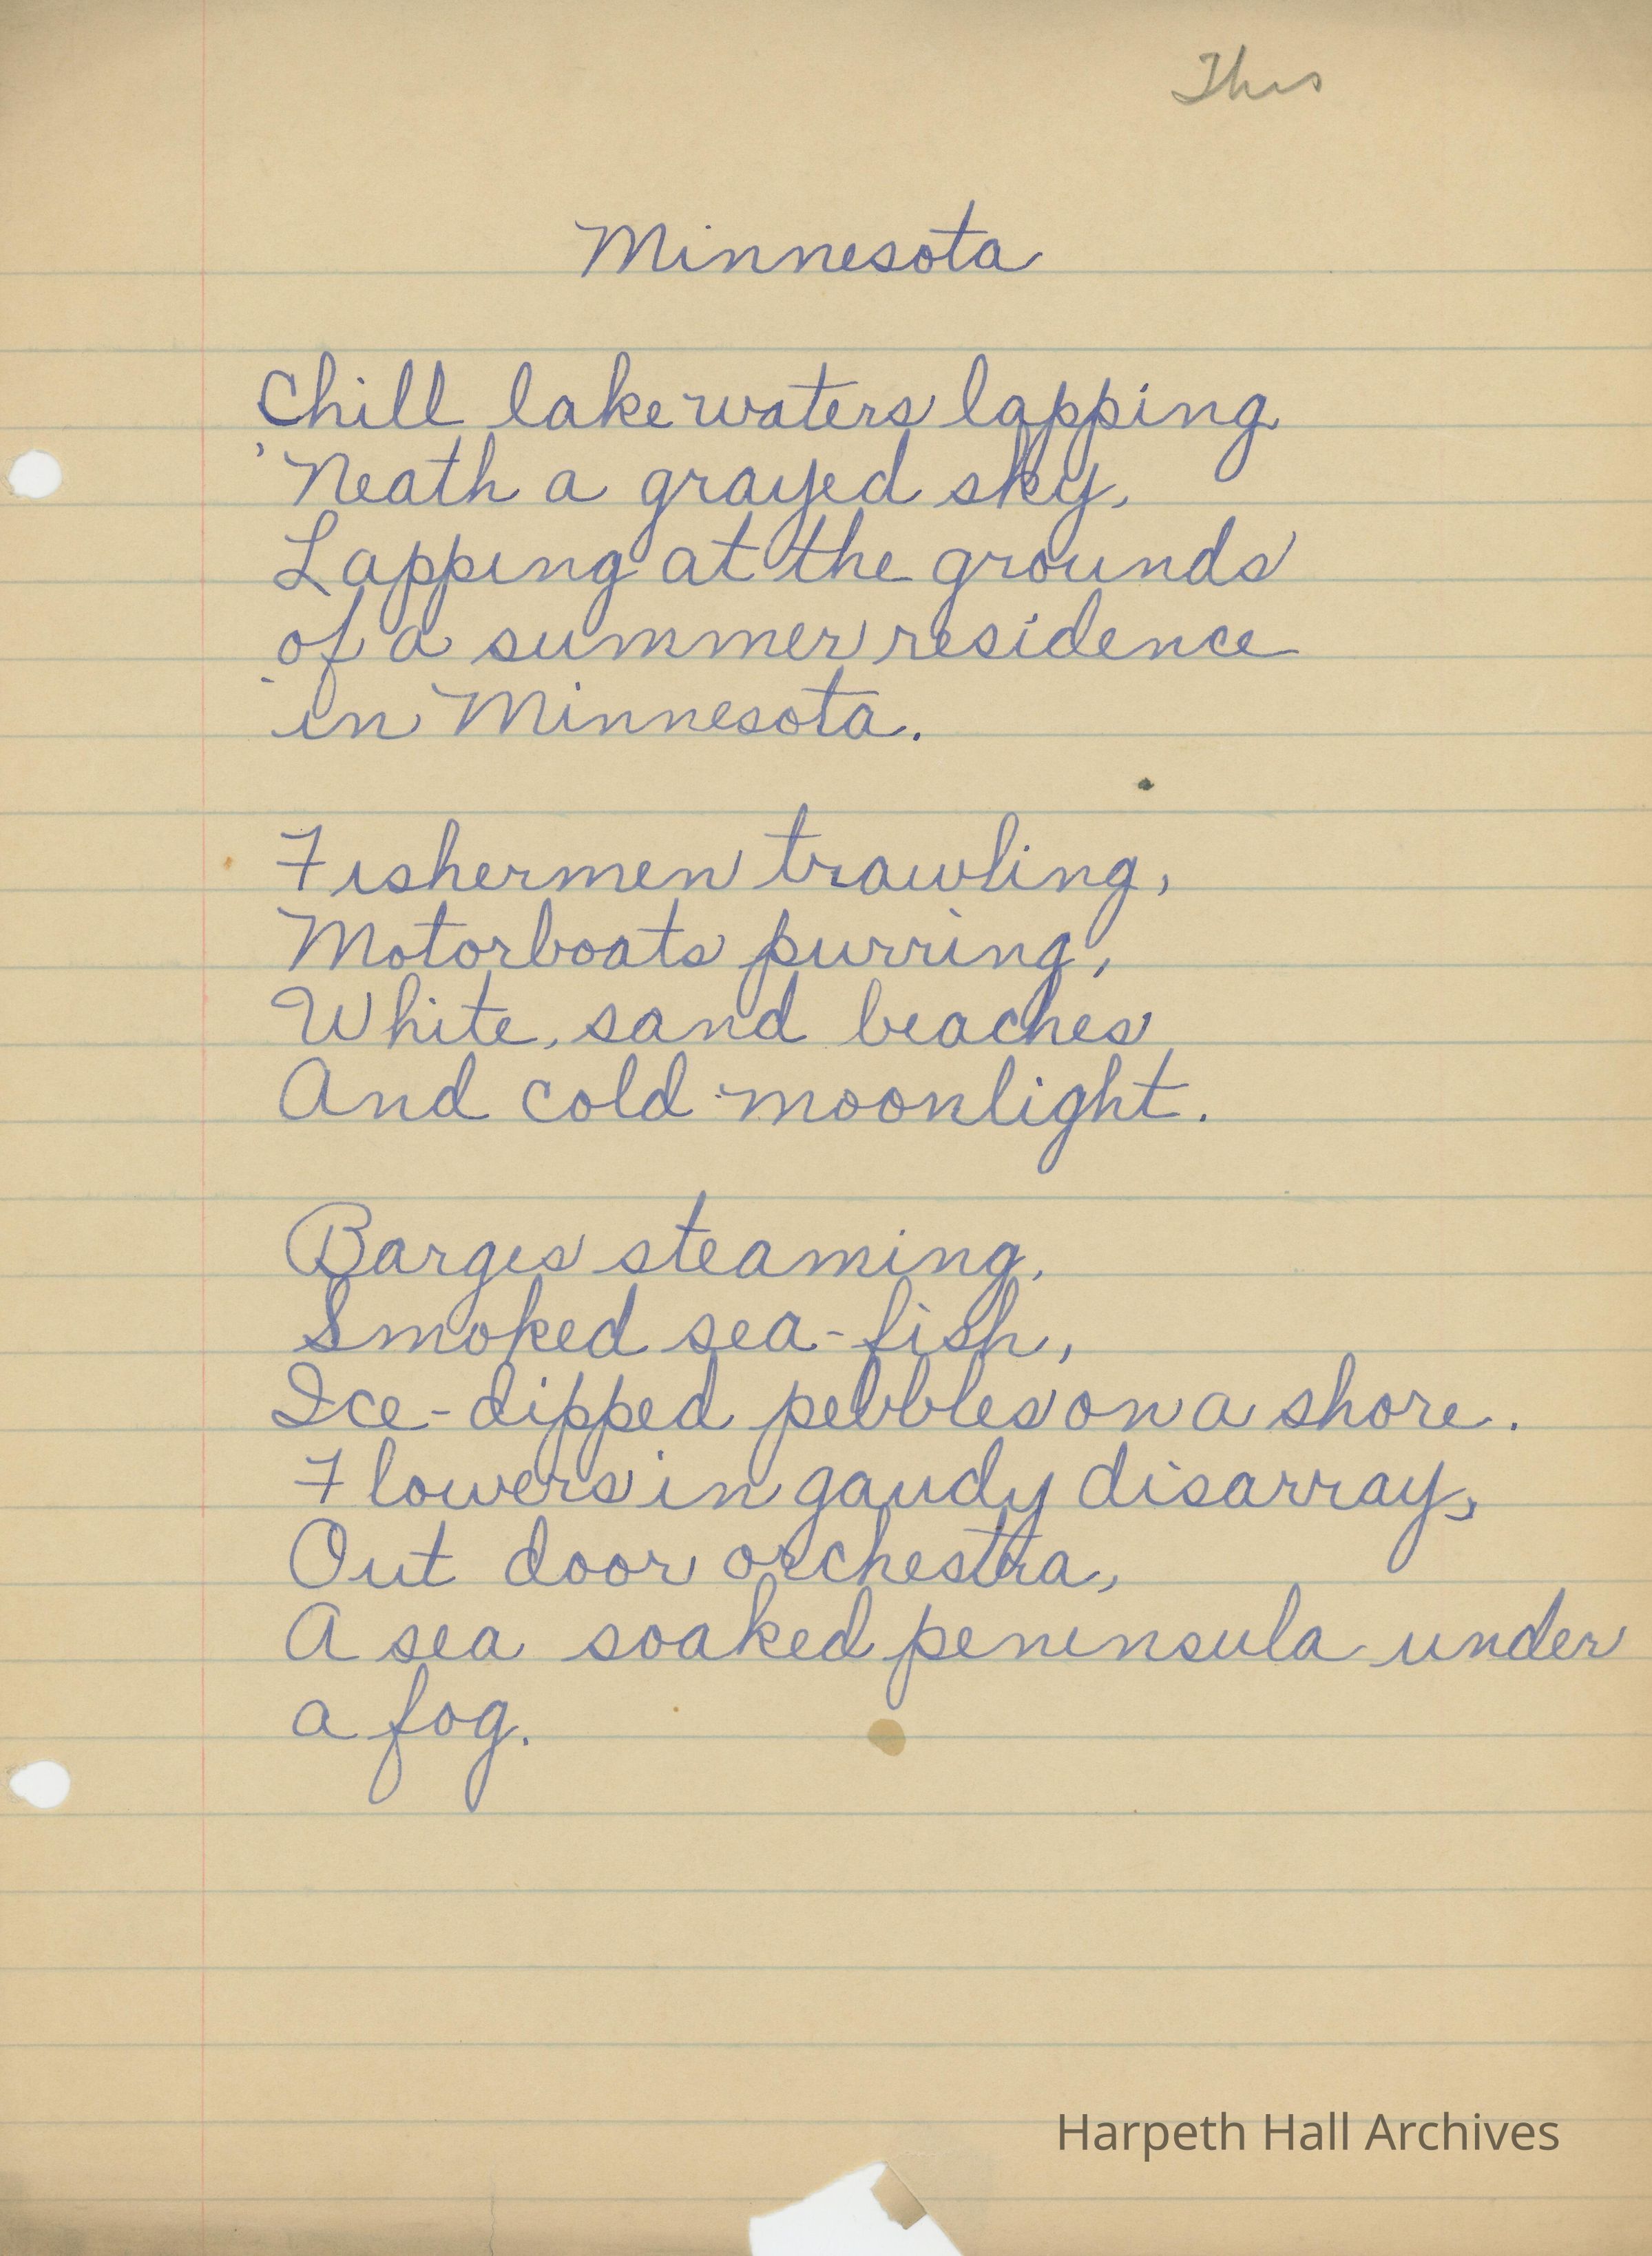 This
Minnesota
Chill lake waters lapping
'Neath a grayed sky,
Lapping at the grounds
of a summer residence
in Minnesota.
Fishermen trawling,
Motorboats purring,
White, sand beaches
And cold moonlight.
Barges steaming,
Smoked sea-fish,
Ice-dipped pebbles on a shore.
Flowers in gaudy disarray,
Out door orchestra,
A sea soaked peninsula under
a fog.
Harpeth Hall Archives